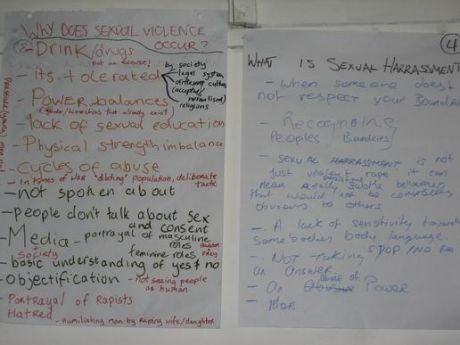 WHY DOES SEXUAL VIOLENCE
OCCUR?
Drink/drugs
not an excuse!
- its tolerated
by society
legal system
different cultures
(accepted/
normalised)
religions
- Power balances
(that already exist)
- lack of sexual education
- Physical strength imbalance
- Cycles of abuse
- In times of war "diluting" population, deliberate
tactic
- not spoken about
- people don't talk about sex
and consent
- Media - portrayal of masculine
roles
feminine roles
society
- basic understanding of yes + no
- objectification - not seeing people
as human
- Portrayal of Rapists
- Hatred - humiliating man by raping wife/daughter
4
WHAT IS SEXUAL HARRASSMENT
- When someone doesn't
not respect your Boundaries
- Recognising
Peoples
- SEXUAL HARRASSMENT IS not
just violent rape it can
mean really subtle behaviour
that would not be completely
obvious to others
- A lack of sensitivity towards
somebodies body language
- NOT TAKING STOP/NO AS
AN ANSWER
- An Abuse of Power